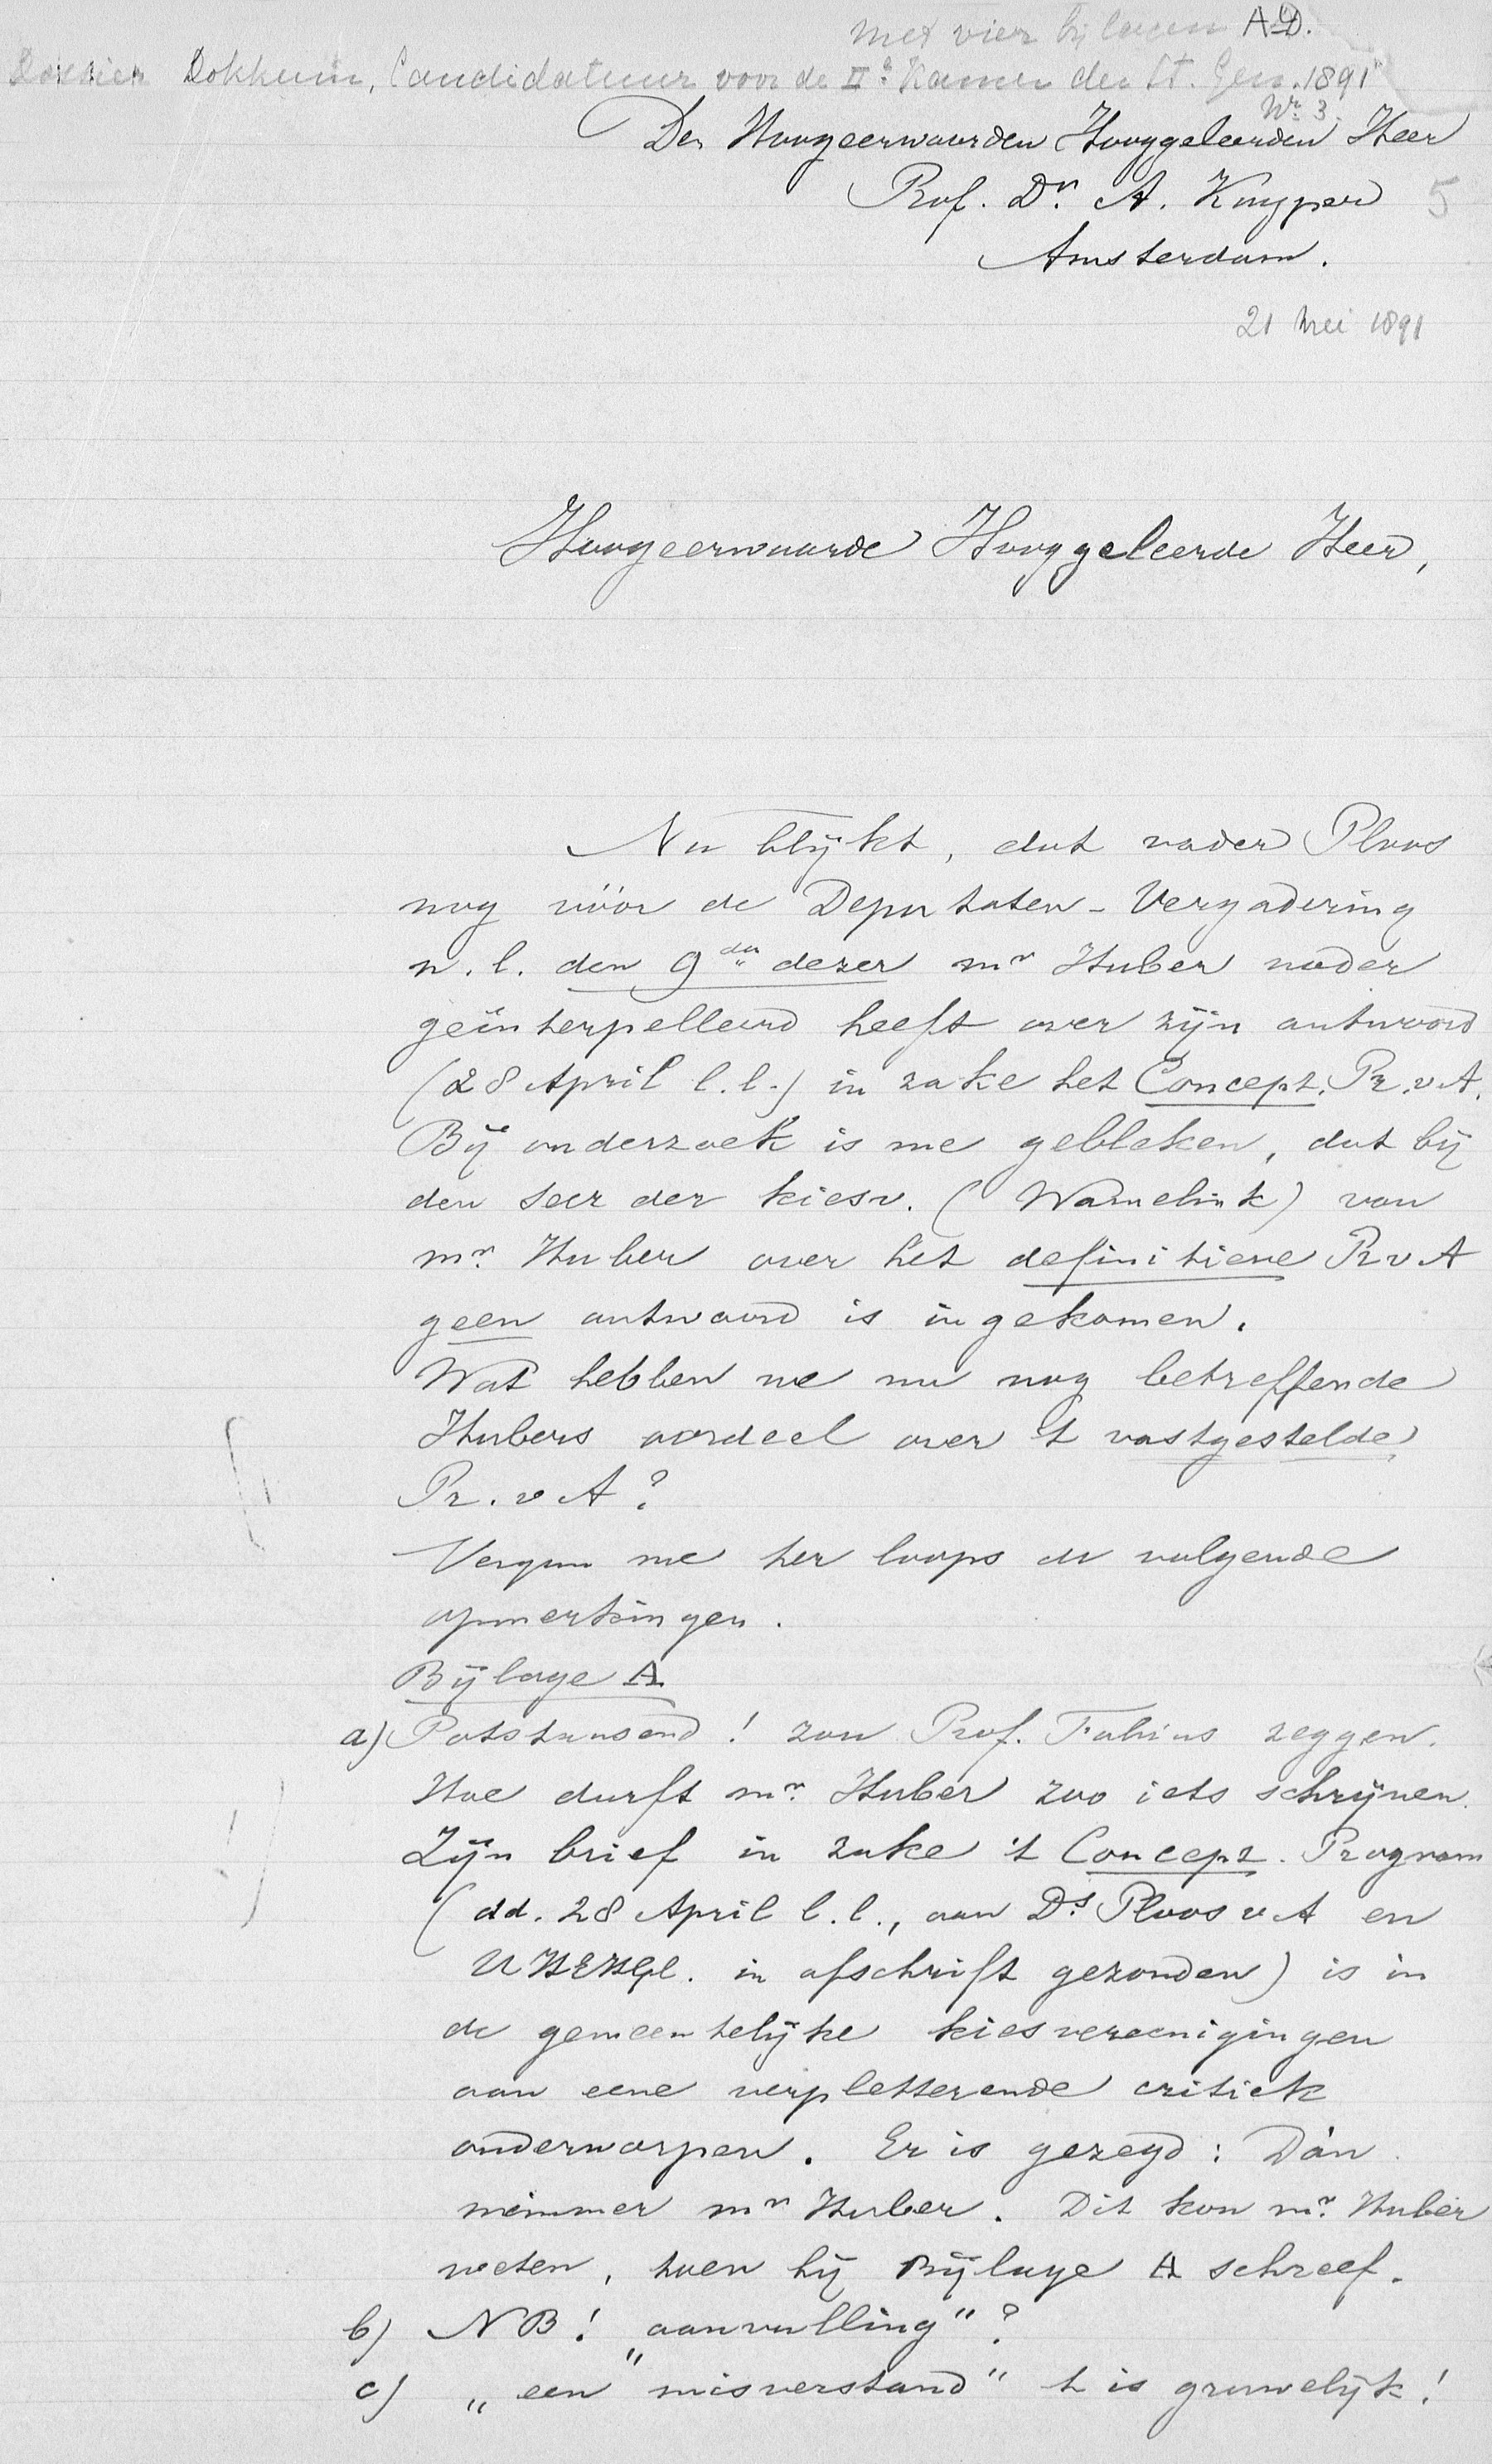 met vier bijlagen A-D.
Dossier Dokkum, Candidatuur voor de IIe Kamer der St. Gen. 1891
No. 3.
Den Hoogeerwaarden Hooggeleerden Heer
Prof. Dr. A. Kuyper
5
Amsterdam.
21 Mei 1891
Hoogeerwaarde Hooggeleerde Heer,
Nu blijkt, dat vader Ploos
nog vóór de Deputaten-Vergadering
n.l. den 9den dezer mr Huber nader
geïnterpelleerd heeft over zijn antwoord
(28 April l.l.) in zake het Concept. Pr. v. A.
Bij onderzoek is me gebleken, dat bij
den secr der kiesv. (Wamelink) van
mr. Huber over het definitieve Pr v A
geen antwoord is ingekomen.
Wat hebben we nu nog betreffende
Hubers oordeel over 't vastgestelde
Pr. v A?
Vergun me ter loops de volgende
opmerkingen.
Bijlage A.
a) Potstausend! zou Prof. Fabius zeggen.
Hoe durft mr. Huber zoo iets schrijven.
Zijn brief in zake 't Concept. Program
(dd. 28 April l.l., aan Ds. Ploos v A en
UHEHGl. in afschrift gezonden) is in
de gemeentelijke kiesvereenigingen
aan eene verpletterende critiek
onderworpen. Er is gezegd: Dán
nimmer mr Huber. Dit kon mr. Huber
weten, toen hij Bijlage A schreef.
b) NB! „aanvulling"?
c) „een misverstand" 't is gruwelijk!